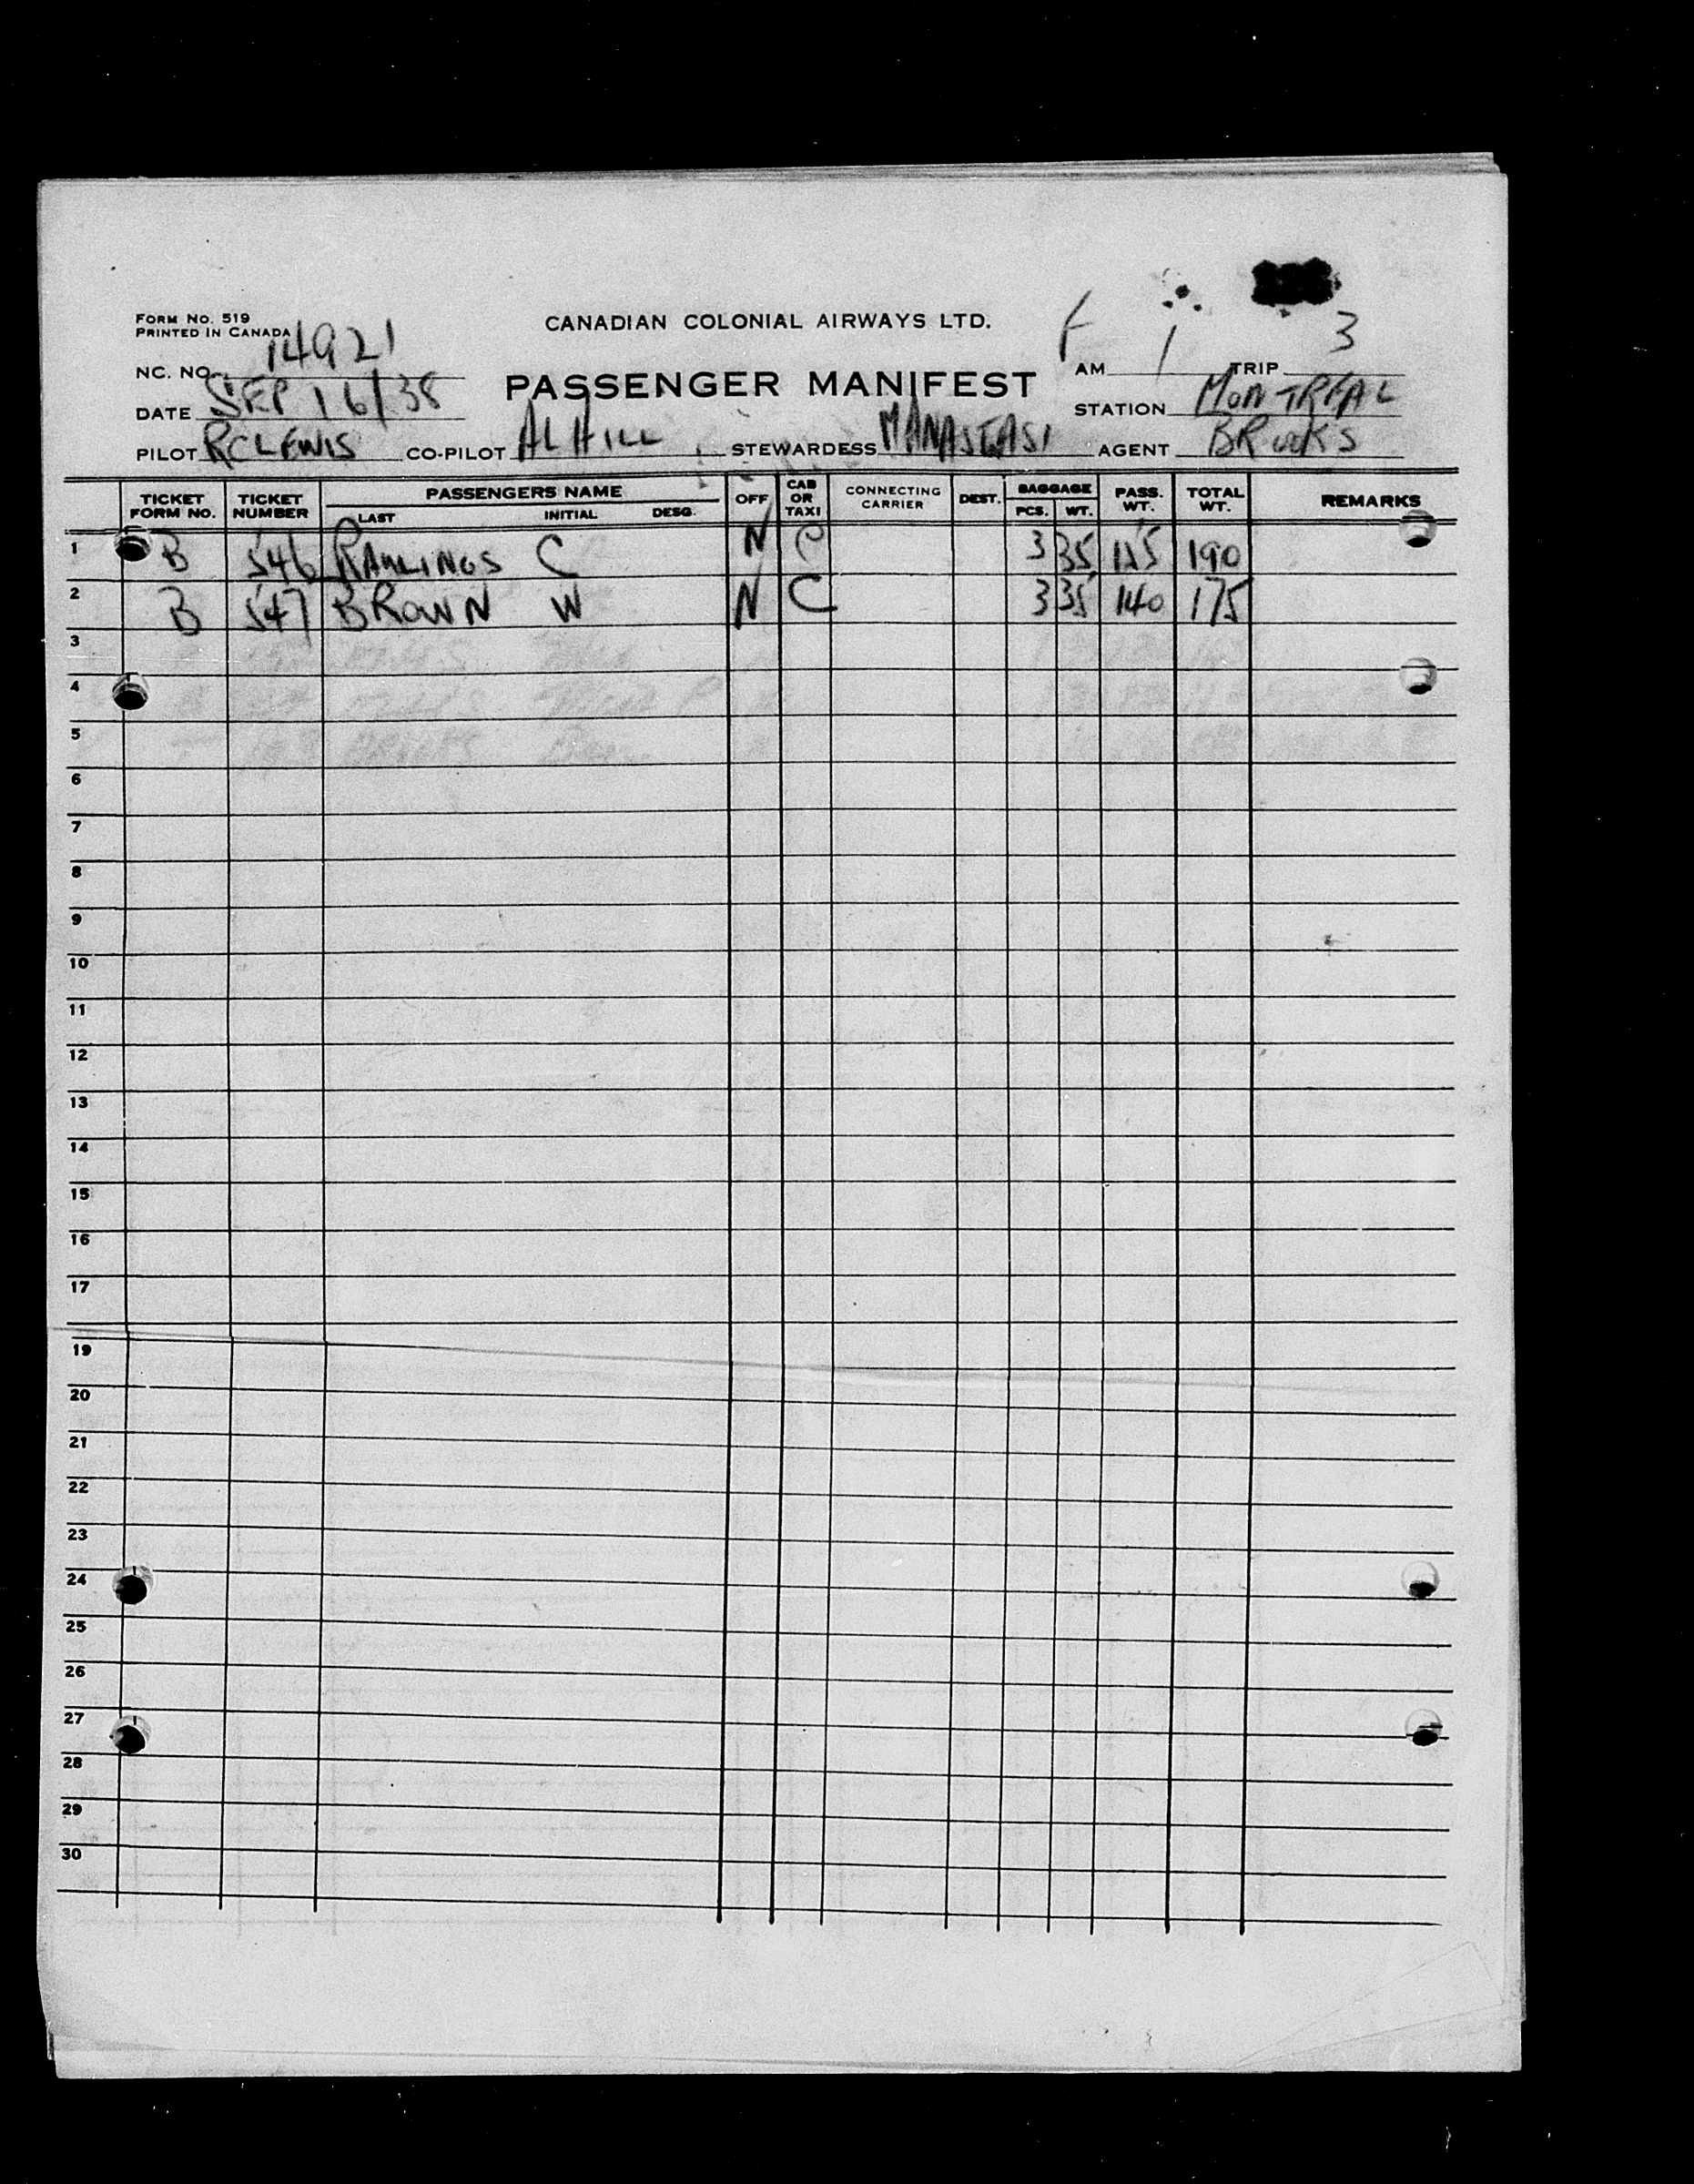 FORM NO. 519
PRINTED IN CANADA
CANADIAN COLONIAL AIRWAYS LTD.
NC. NO. 14921
PASSENGER MANIFEST
AM 1 TRIP 3
DATE SEP 16/38
STATION MONTREAL
PILOT RC LEWIS CO-PILOT AL HILL STEWARDESS M ANASTASI AGENT BROOKS
TICKET FORM NO. TICKET NUMBER PASSENGERS NAME LAST INITIAL DESG. OFF CAB OR TAXI CONNECTING CARRIER DEST. BAGGAGE PCS. WT. PASS. WT. TOTAL WT. REMARKS
1 B 546 RAWLINGS C N C 3 35 155 190
2 B 547 BROWN W N C 3 35 140 175
3
4
5
6
7
8
9
10
11
12
13
14
15
16
17
19
20
21
22
23
24
25
26
27
28
29
30